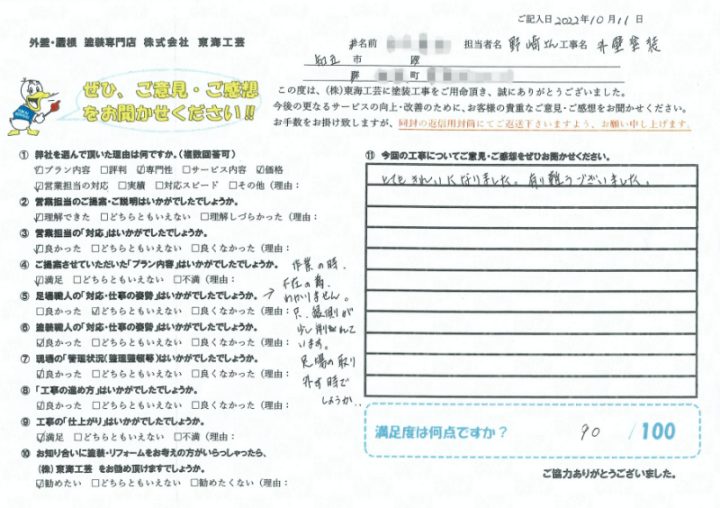 ご記入日2022年10月11日
外壁・屋根 塗装専門店 株式会社 東海工芸
お名前 担当者名 野崎さん 工事名 外壁塗装
知立 市
町
ぜひ、ご意見・ご感想
をお聞かせください!!
この度は、(株)東海工芸に塗装工事をご用命頂き、誠にありがとうございました。
今後の更なるサービスの向上・改善のために、お客様の貴重なご意見・ご感想をお聞かせください。
お手数をお掛け致しますが、同封の返信用封筒にてご返送下さいますよう、お願い申し上げます。
① 弊社を選んで頂いた理由は何ですか。(複数回答可)
☑プラン内容 □評判 ☑専門性 □サービス内容 ☑価格
☑営業担当の対応 □実績 □対応スピード □その他(理由:
② 営業担当のご提案・ご説明はいかがでしたでしょうか。
☑理解できた □どちらともいえない □理解しづらかった(理由:
③ 営業担当の「対応」はいかがでしたでしょうか。
☑良かった □どちらともいえない □良くなかった(理由:
④ ご提案させていただいた「プラン内容」はいかがでしたでしょうか。
☑満足 □どちらともいえない □不満(理由:
⑤ 足場職人の「対応・仕事の姿勢」はいかがでしたでしょうか。
□良かった ☑どちらともいえない □良くなかった(理由:
作業の時、
不在の為、
わかりません。
只、縁側が
少し削られて
います。
足場の取り
外す時で
しょうか。
⑥ 塗装職人の「対応・仕事の姿勢」はいかがでしたでしょうか。
☑良かった □どちらともいえない □良くなかった(理由:
⑦ 現場の「管理状況(整理整頓等)」はいかがでしたでしょうか。
☑良かった □どちらともいえない □良くなかった(理由:
⑧ 「工事の進め方」はいかがでしたでしょうか。
☑良かった □どちらともいえない □良くなかった(理由:
⑨ 工事の「仕上がり」はいかがでしたでしょうか。
☑満足 □どちらともいえない □不満(理由:
⑩ お知り合いに塗装・リフォームをお考えの方がいらっしゃったら、
(株)東海工芸 をお勧め頂けますでしょうか。
☑勧めたい □どちらともいえない □勧めたくない(理由:
⑪ 今回の工事についてご意見・ご感想をぜひお聞かせください。
とてもきれいになりました。有り難うございました。
満足度は何点ですか? 90 /100
ご協力ありがとうございました。